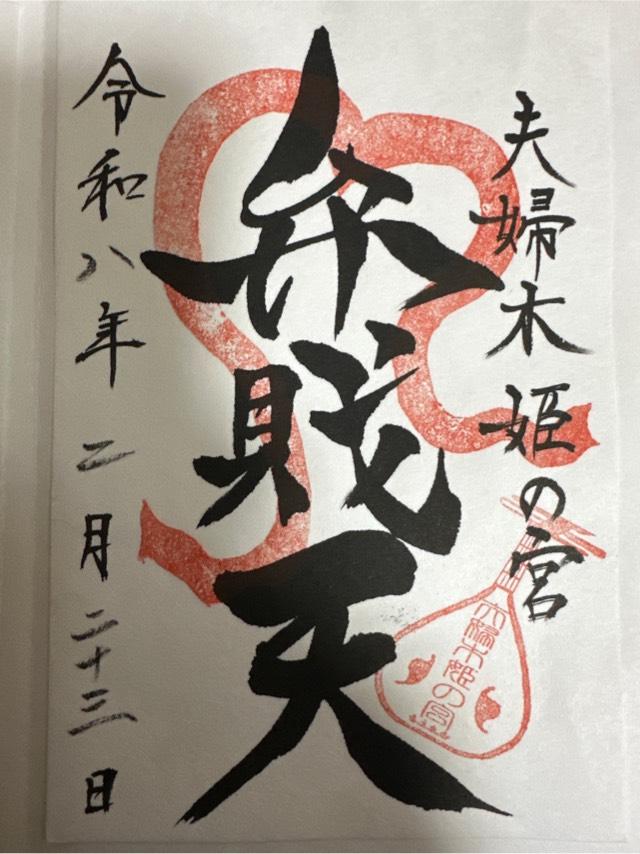 夫婦木姫の宮
弁財天
令和八年二月二十三日
夫婦木姫の宮